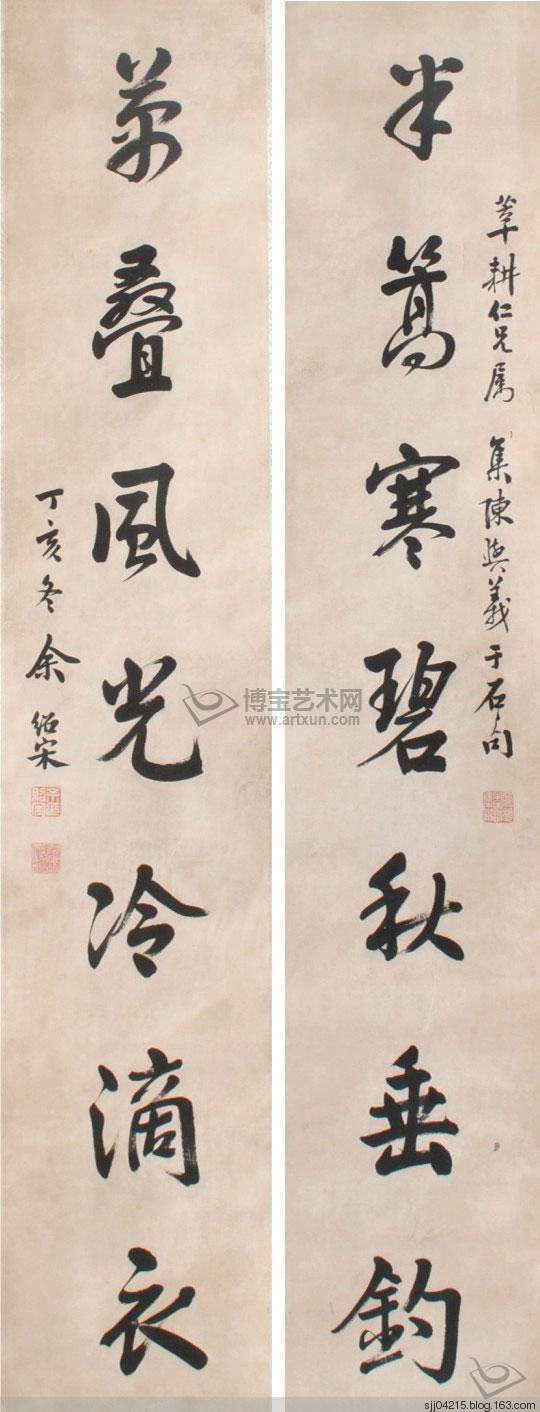 半篙寒碧秋垂釣
耕仁兄属 集陳與義于石句
萬叠風光冷滴衣
丁亥冬 余紹宋
博宝艺术网
www.artxun.com
sjj04215.blog.163.com